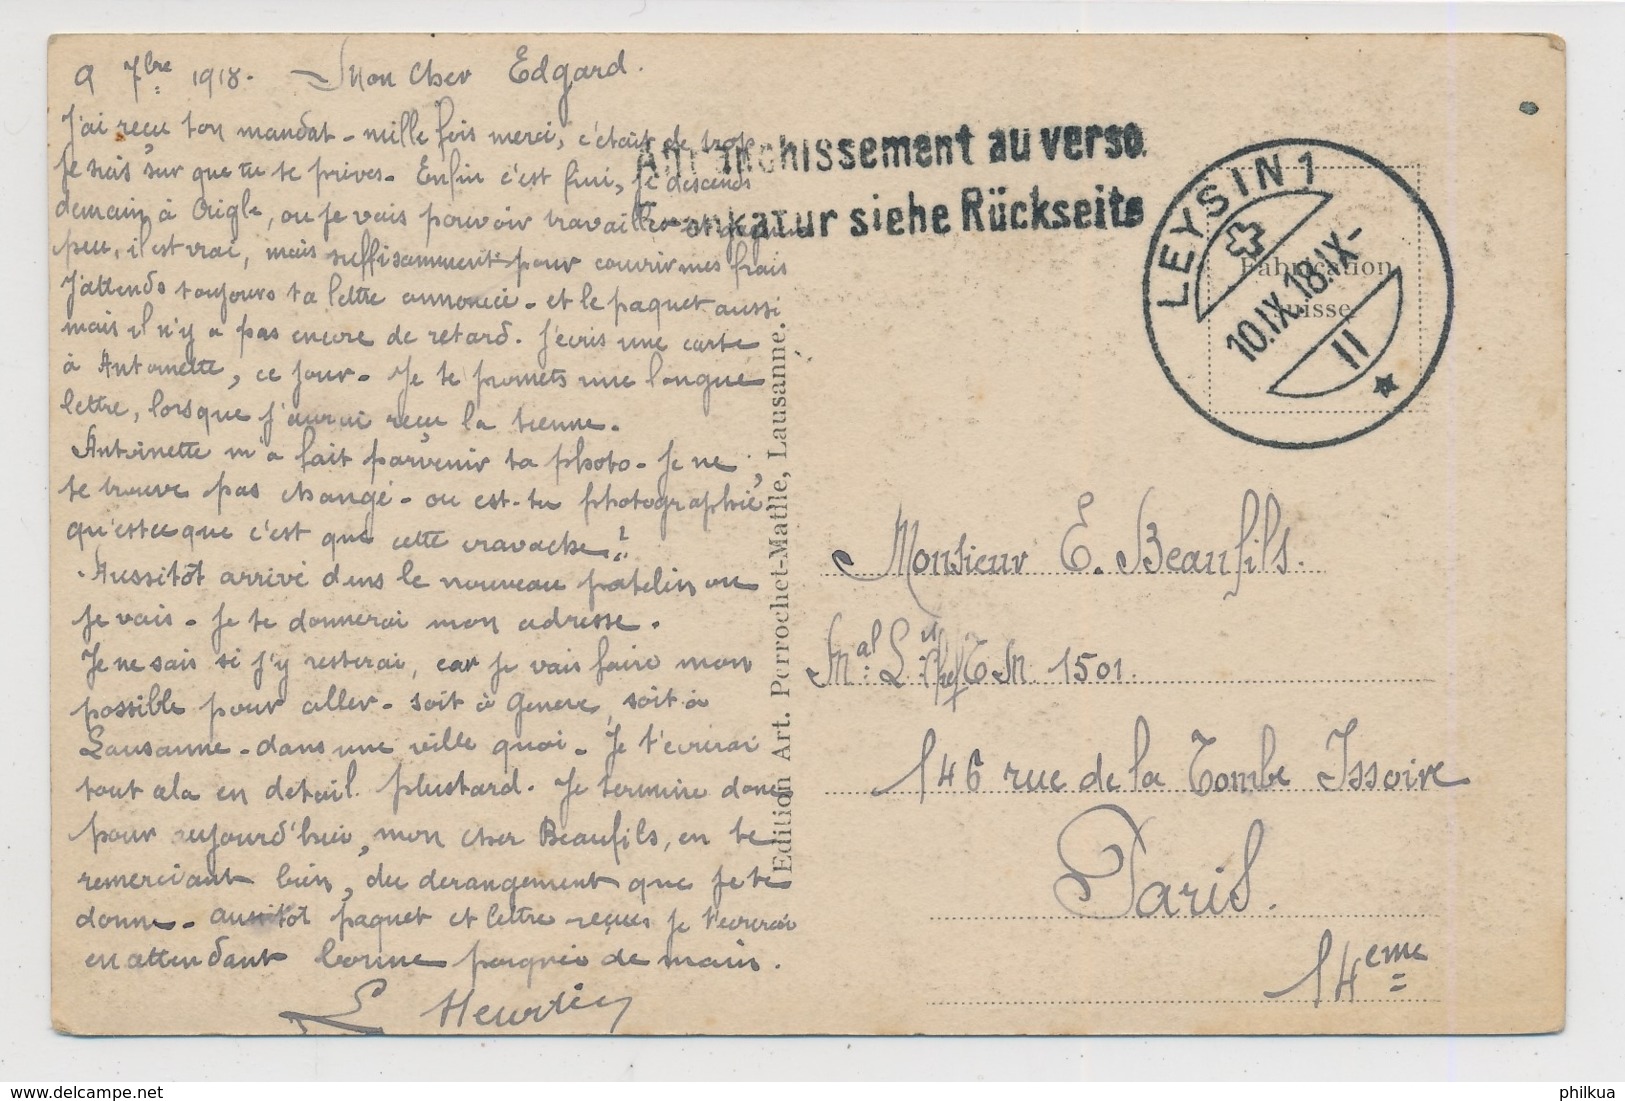 9 7bre 1918. Mon Cher Edgard.
J'ai reçu ton mandat - mille fois merci, c'était de trop
je sais sur que tu te prives. Enfin c'est fini, je descends
demain à Aigle, ou je vais pouvoir travailler et gagner
peu, il est vrai, mais suffisamment pour couvrir mes frais
J'attends toujours ta lettre annoncée - et le paquet aussi
mais il n'y a pas encore de retard. J'écris une carte
à Antoinette, ce jour - Je te promets une longue
lettre, lorsque j'aurai reçu la tienne.
Antoinette m'a fait parvenir ta photo - Je ne
te trouve pas changé - ou est-tu photographié,
qu'estce que c'est que cette cravache?
Aussitôt arrivé dans le nouveau patelin ou
je vais - je te donnerai mon adresse.
Je ne sais si j'y resterai, car je vais faire mon
possible pour aller - soit à Geneve, soit à
Lausanne - dans une ville quoi - Je t'ecrirai
tout cela en detail plustard. Je termine donc
pour aujourd'hui, mon cher Beaufils, en te
remerciant bien, du derangement que je te
donne - aussitôt paquet et lettre reçus je t'ecrirai
en attendant bonne poignée de main.
Affranchissement au verso.
Frankatur siehe Rückseite
LEYSIN 1
10.IX.18.IX-
II
Fabrication
Suisse
Edition Art. Perrochet-Matile, Lausanne.
Monsieur E. Beaufils.
Mal L. 1501.
146 rue de la Tombe Issoire
Paris.
14eme
philkua